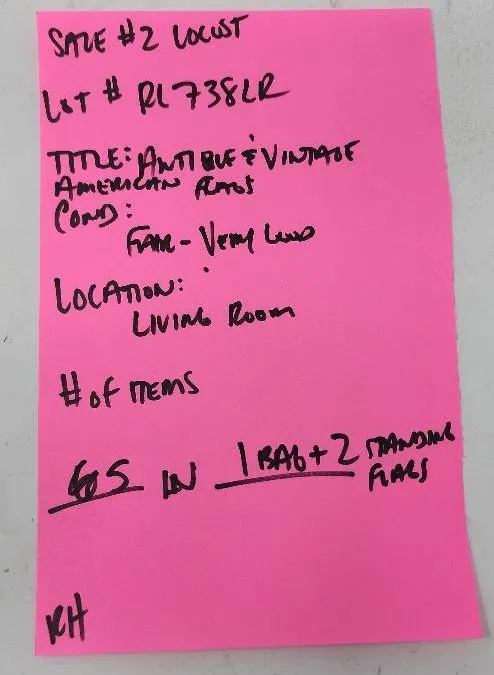 SALE #2 LOCUST
Lot # RL738LR
TITLE: ANTIQUE & VINTAGE
AMERICAN FLAGS
COND:
FAIR - VERY GOOD
LOCATION:
LIVING ROOM
# OF ITEMS
5 IN 1 BAG + 2 STANDING
FLAGS
RH